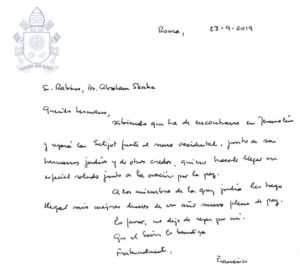 Roma, 23-9-2019
S. Rabino, Dr. Abraham Skorka
Querido hermano,
sabiendo que ha de encontrarse en Jerusalén
y rezará las Selijot frente al muro occidental, junto a sus
hermanos judíos y de otros credos, quiero hacerle llegar un
especial saludo junto a la oración por la paz.
A los miembros de la grey judía les hago
llegar mis mejores deseos de un año nuevo pleno de paz.
Por favor, no deje de rezar por mí.
Que el Señor lo bendiga
Fraternalmente,
Francisco